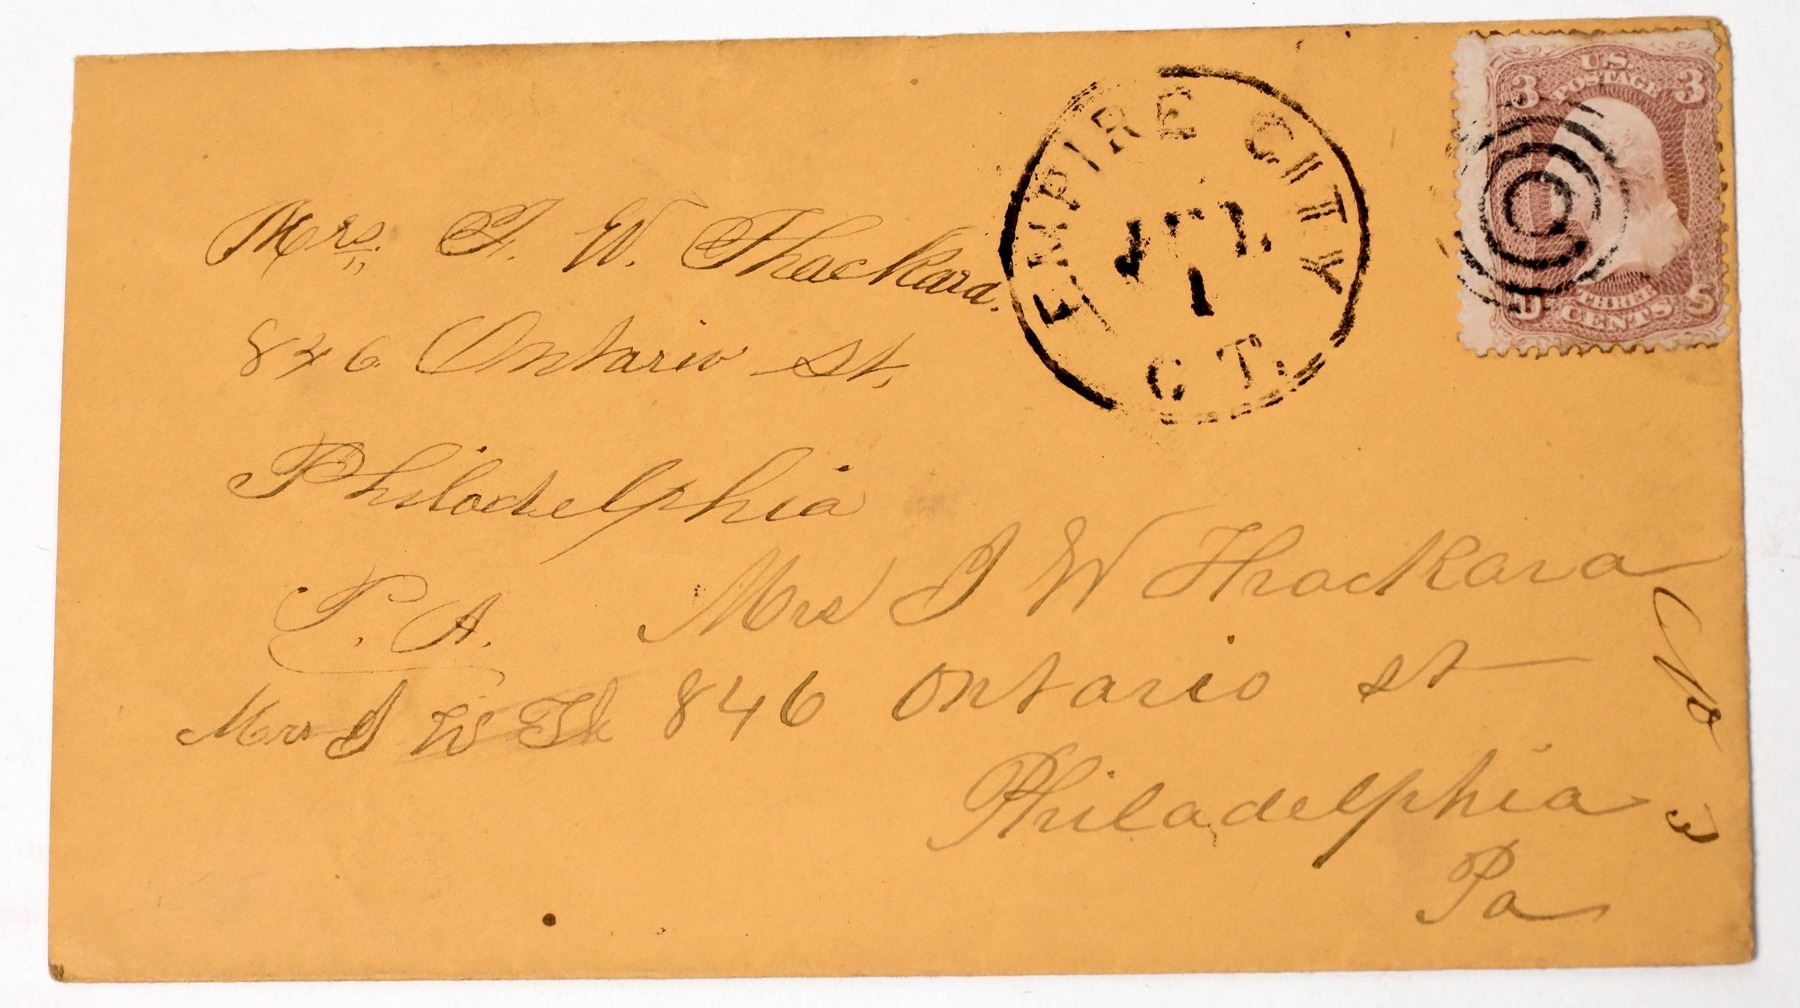 EMPIRE CITY
JUL
1
C T.
3 U.S. POSTAGE 3
THREE
CENTS
Mrs. J. W. Thackara.
846 Ontario St.
Philadelphia
P. A.
Mrs J W Thackara
846 Ontario st
Philadelphia
Pa
Mrs J W Th
No
3